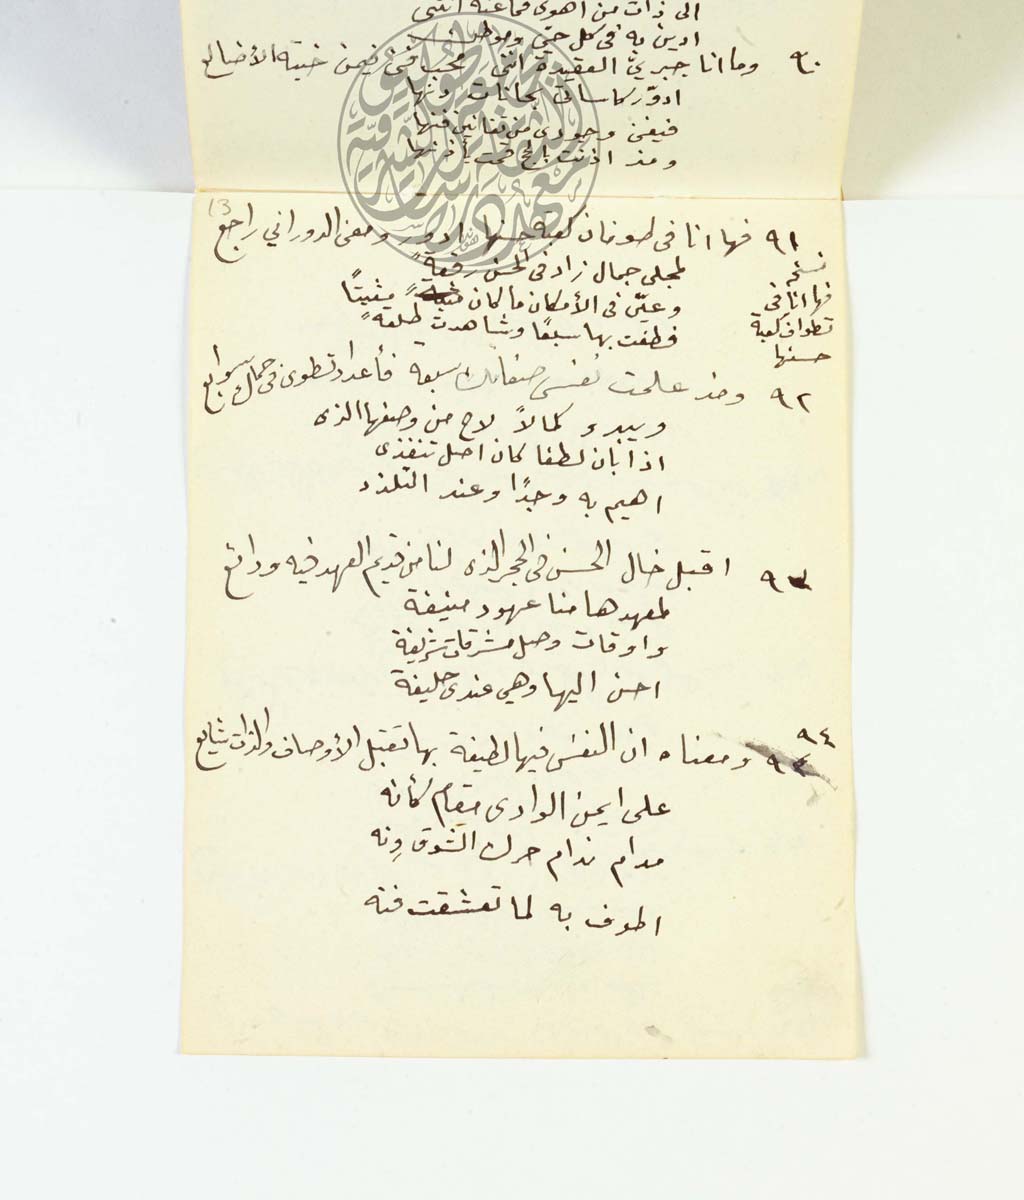 الى ذات من اهوى فما عنه انثني
ادين به في كل حيّ وموطن
٩٠ وما انا جبريّ العقيدة انني محب فنى فيمن خبته الأضالع
ادوّر كاساتي بحانات دنها
فيفنى وجودي من تفانين فنها
ومذ اذنت بالحج تحت يأذنها
13
٩١ فها انا في طوفان كعبة حسنها ادور ومعنى الدوران راجع
لمجلى جمال زاد في الحسن رفعةً
وعيّن في الأمكان ما كان مثبتاً
فطفت بها سبعًا وشاهدت طلعةً
نسخه
فها انا في
تطواف كعبة
حسنها
٩٢ ومذ علمت نفسي صفاتك سبعة فأعداد تطوى في جمال سوابع
ويبدو كمالاً لاح من وصفها الذي
اذا بان لطفا كان اصل تنفذي
اهيم به وجدًا وعند التلذذ
٩٣ اقبل خال الحسن في الحجر الذي لنا من قديم العهد فيه ودائع
لمعهدها منا عهود منيفة
واوقات وصل مشرقات شريفة
احن اليها وهي عندي خليفة
٩٤ ومعناه ان النفس فيها لطيفة بها تقبل الأوصاف والذات شايع
على ايمن الوادي مقام كأنه
مدام ندام حرك الشوق ونه
اطوف به لما تعشقت فنه